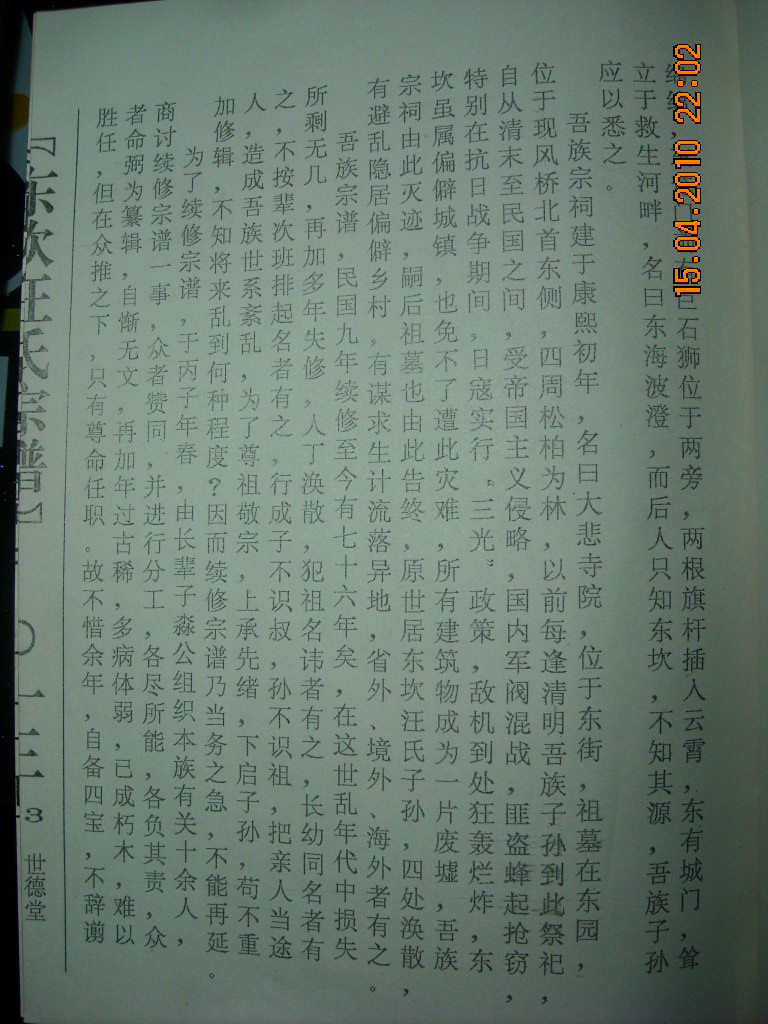 巨石狮位于两旁，两根旗杆插入云霄，东有城门，耸
立于救生河畔，名曰东海波澄，而后人只知东坎，不知其源，吾族子孙
应以悉之。
吾族宗祠建于康熙初年，名曰大悲寺院，位于东街，祖墓在东园，
位于现风桥北首东侧，四周松柏为林，以前每逢清明吾族子孙到此祭祀，
自从清末至民国之间，受帝国主义侵略，国内军阀混战，匪盗蜂起抢窃，
特别在抗日战争期间，日寇实行“三光”政策，敌机到处狂轰烂炸，东
坎虽属偏僻城镇，也免不了遭此灾难，所有建筑物成为一片废墟，吾族
宗祠由此灭迹，嗣后祖墓也由此告终，原世居东坎汪氏子孙，四处涣散，
有避乱隐居偏僻乡村，有谋求生计流落异地，省外、境外、海外者有之。
吾族宗谱，民国九年续修至今有七十六年矣，在这世乱年代中损失
所剩无几，再加多年失修，人丁涣散，犯祖名讳者有之，长幼同名者有
之，不按辈次班排起名者有之，行成子不识叔，孙不识祖，把亲人当途
人，造成吾族世系紊乱，为了尊祖敬宗，上承先绪，下启子孙，苟不重
加修辑，不知将来乱到何种程度？因而续修宗谱乃当务之急，不能再延。
为了续修宗谱，于丙子年春，由长辈子淼公组织本族有关十余人，
商讨续修宗谱一事，众者赞同，并进行分工，各尽所能，各负其责，众
者命弼为纂辑，自惭无文，再加年过古稀，多病体弱，已成朽木，难以
胜任，但在众推之下，只有尊命任职。故不惜余年，自备四宝，不辞谫
『东坎汪氏宗谱』
3
世德堂
15.04.2010 22:02